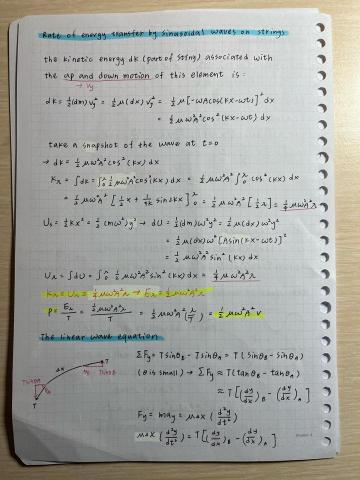 Rate of energy transfer by sinusoidal waves on strings
the kinetic energy dK (part of string) associated with
the up and down motion of this element is :
→ vy
dK = ½(dm) vy² = ½ μ(dx) vy² = ½ μ[-ωA cos(kx-ωt)]² dx
= ½ μω²A² cos²(kx-ωt) dx
take a snapshot of the wave at t=0
→ dK = ½ μω²A² cos²(kx) dx
Kλ = ∫dK = ∫₀^λ ½ μω²A² cos²(kx) dx = ½ μω²A² ∫₀^λ cos²(kx) dx
= ½ μω²A² [½x + 1/4k sin2kx]₀^λ = ½ μω²A² [½λ] = ¼ μω²A²λ
Us = ½kx² = ½(mω²)y² → dU = ½(dm)ω²y² = ½ μ(dx) ω²y²
= ½ μ(dx)ω² [A sin(kx-ωt)]²
= ½ μω²A² sin²(kx) dx
Uλ = ∫dU = ∫₀^λ ½ μω²A² sin²(kx) dx = ¼ μω²A²λ
Kλ = Uλ = ¼ μω²A²λ → Eλ = ½ μω²A²λ
P = Eλ/T = ½ μω²A²λ/T = ½ μω²A² (λ/T) = ½ μω²A² v
The linear wave equation
ΣFy = TsinθB - TsinθA = T(sinθB - sinθA)
(θ is small) → ΣFy ≈ T(tanθB - tanθA)
≈ T[(dy/dx)B - (dy/dx)A]
Fy = may = μΔx (d²y/dt²)
μΔx (d²y/dt²) = T[(dy/dx)B - (dy/dx)A]
Δx
T
TsinθB
θB
TsinθA
θA
T